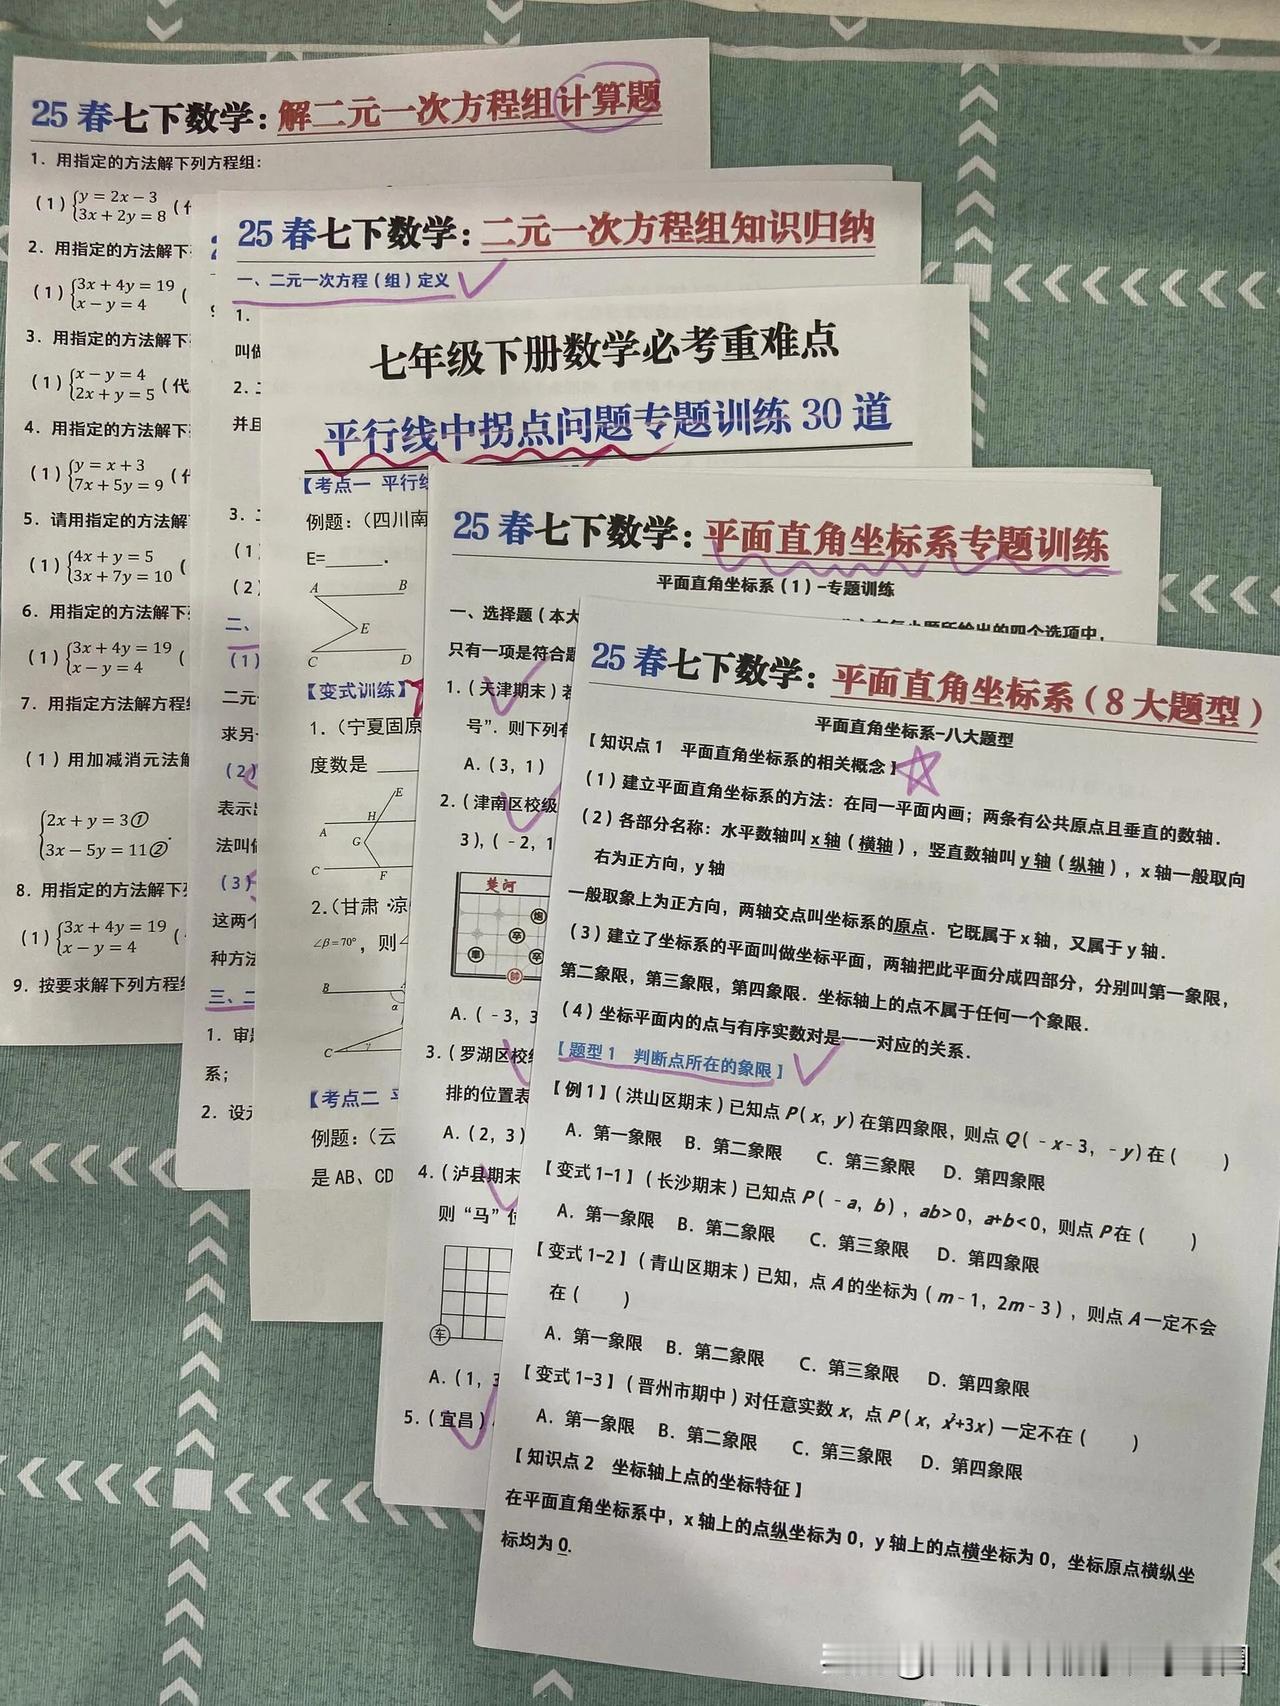 25 春七下数学：解二元一次方程组计算题
1. 用指定的方法解下列方程组：
(1) {y = 2x − 3
3x + 2y = 8 (
2. 用指定的方法解下
(1) {3x + 4y = 19
x − y = 4 (
3. 用指定的方法解下
(1) {x − y = 4
2x + y = 5 (代
4. 用指定的方法解下
(1) {y = x + 3
7x + 5y = 9 (
5. 请用指定的方法解
(1) {4x + y = 5
3x + 7y = 10 (
6. 用指定的方法解下
(1) {3x + 4y = 19
x − y = 4 (
7. 用指定方法解方程
(1) 用加减消元法解
{2x + y = 3①
3x − 5y = 11②.
8. 用指定的方法解下
(1) {3x + 4y = 19
x − y = 4 (
9. 按要求解下列方程
25 春七下数学：二元一次方程组知识归纳
一、二元一次方程（组）定义
1.
叫做
2. 二
并且
3. 二
(1)
(2)
二、
(1)
二元
求另
(2)
表示
法叫
(3)
这两个
种方法
三、二
1. 审题
系；
2. 设元
七年级下册数学必考重难点
平行线中拐点问题专题训练 30 道
【考点一 平行线
例题：（四川南
E=____.
A B
E
C D
【变式训练】
1.（宁夏固原
度数是
E
A H
G
C F
2.（甘肃·凉
∠β=70°，则∠
B A
α
C γ
【考点二 平
例题：（云
是 AB、CD
25 春七下数学：平面直角坐标系专题训练
平面直角坐标系（1）-专题训练
一、选择题（本大
在每小题所给出的四个选项中，
只有一项是符合题
1.（天津期末）若
号”. 则下列有
A.（3，1）
2.（津南区校级
3)，(﹣2，1
楚河
炮
卒
車 卒
帥
A.（﹣3，3
3.（罗湖区校级
排的位置表
A.（2，3）
4.（泸县期末
则“马”位
车
A.（1，3
5.（宜昌）
25 春七下数学：平面直角坐标系（8 大题型）
平面直角坐标系-八大题型
【知识点 1 平面直角坐标系的相关概念】
（1）建立平面直角坐标系的方法：在同一平面内画；两条有公共原点且垂直的数轴.
（2）各部分名称：水平数轴叫 x 轴（横轴），竖直数轴叫 y 轴（纵轴），x 轴一般取向
右为正方向，y 轴
一般取象上为正方向，两轴交点叫坐标系的原点. 它既属于 x 轴，又属于 y 轴.
（3）建立了坐标系的平面叫做坐标平面，两轴把此平面分成四部分，分别叫第一象限，
第二象限，第三象限，第四象限. 坐标轴上的点不属于任何一个象限.
（4）坐标平面内的点与有序实数对是一一对应的关系.
【题型 1 判断点所在的象限】
【例 1】（洪山区期末）已知点 P(x，y) 在第四象限，则点 Q(﹣x﹣3，﹣y) 在（ ）
A. 第一象限 B. 第二象限 C. 第三象限 D. 第四象限
【变式 1-1】（长沙期末）已知点 P(﹣a，b)，ab＞0，a+b＜0，则点 P 在（ ）
A. 第一象限 B. 第二象限 C. 第三象限 D. 第四象限
【变式 1-2】（青山区期末）已知，点 A 的坐标为（m﹣1，2m﹣3），则点 A 一定不会
在（ ）
A. 第一象限 B. 第二象限 C. 第三象限 D. 第四象限
【变式 1-3】（晋州市期中）对任意实数 x，点 P(x，x²+3x) 一定不在（ ）
A. 第一象限 B. 第二象限 C. 第三象限 D. 第四象限
【知识点 2 坐标轴上点的坐标特征】
在平面直角坐标系中，x 轴上的点纵坐标为 0，y 轴上的点横坐标为 0，坐标原点横纵坐
标均为 0.